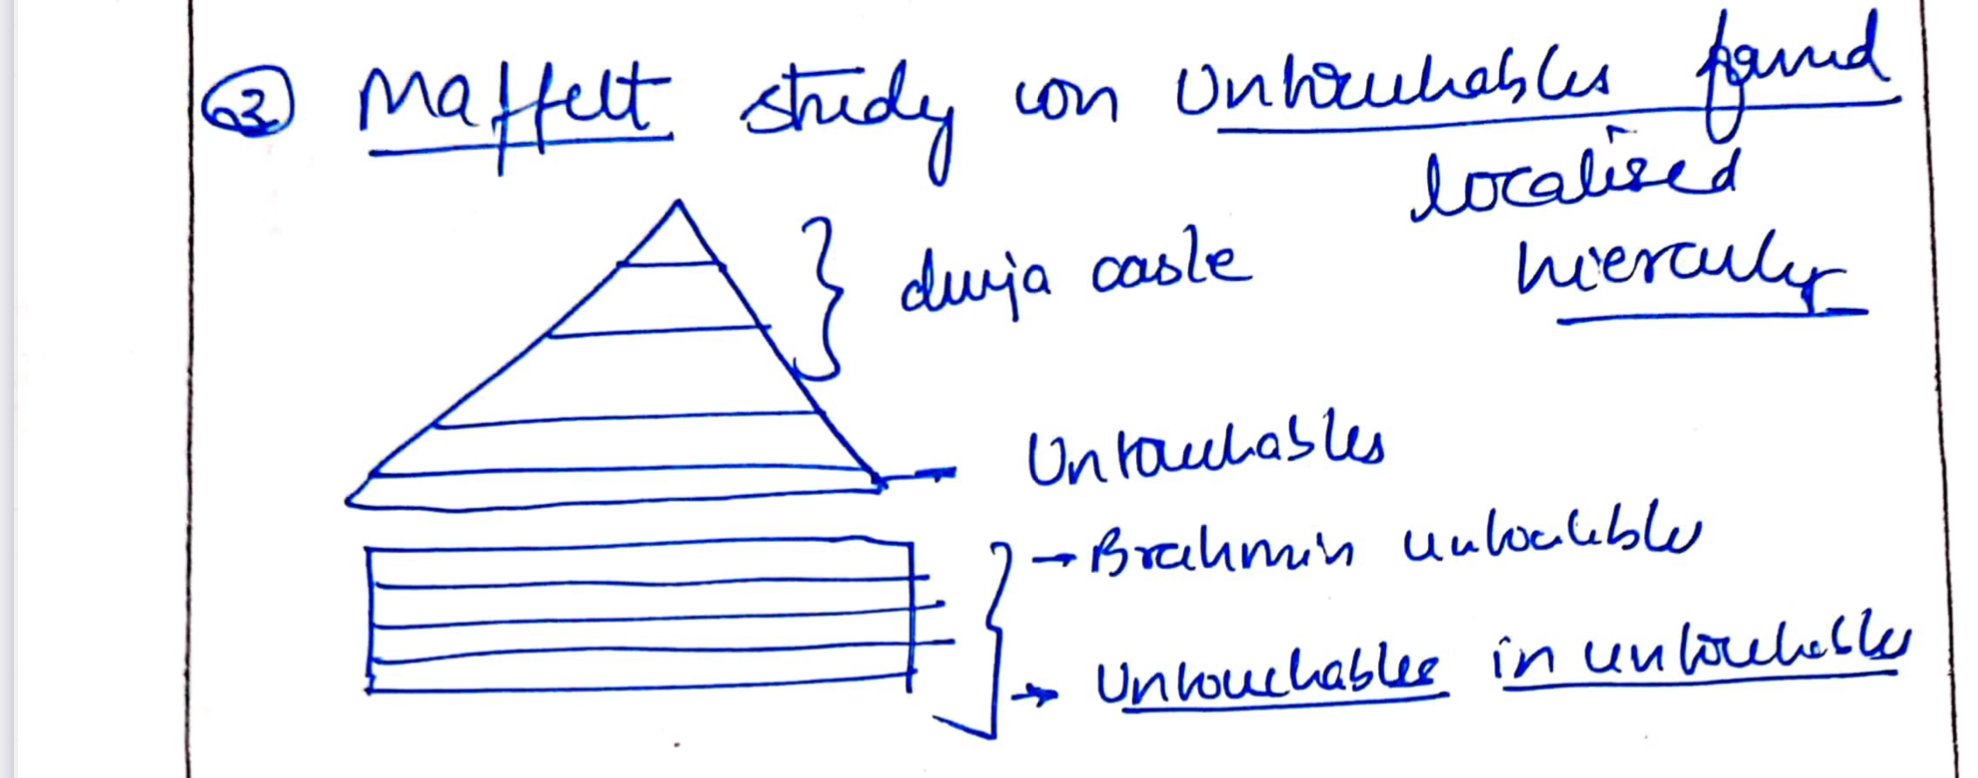 ③ Maffelt study on Untouchables found
localised
hierarchy
dwija caste
Untouchables
→ Brahmin untouchble
→ Untouchables in untouchables